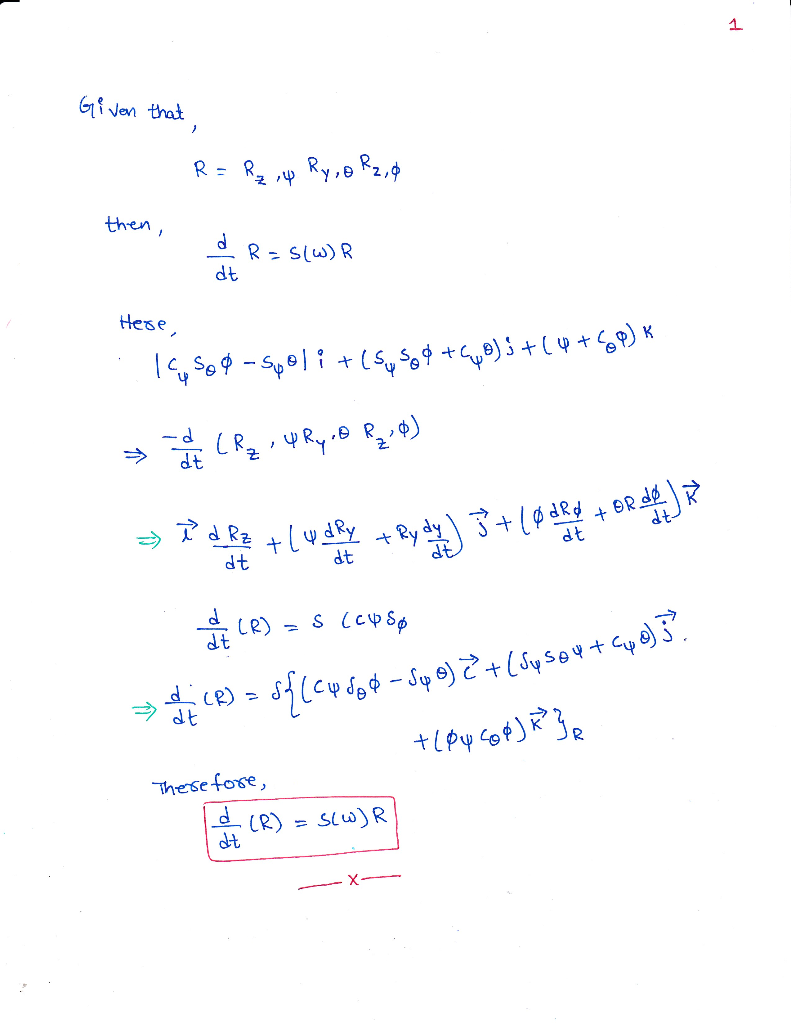 1
Given that,
R = R_z,ψ R_y,θ R_z,φ
then,
d/dt R = S(ω) R
Here,
|c_ψ s_θ φ - s_ψ θ| i + (s_ψ s_θ φ + c_ψ θ) j + (ψ + c_θ φ) k
⇒ -d/dt (R_z, ψ R_y, θ R_z, φ)
⇒ i⃗ dR_z/dt + (ψ dRy/dt + Ry dy/dt) j⃗ + (φ dRφ/dt + θR dφ/dt) k⃗
d/dt (R) = S (cψ Sφ
⇒ d/dt (R) = S{(cψ S_θ φ - Sψ θ) i⃗ + (Sψ S_θ ψ + cψ θ) j⃗.
+ (φψ c_θ φ) k⃗ }_R
Therefore,
d/dt (R) = S(ω) R
—x—